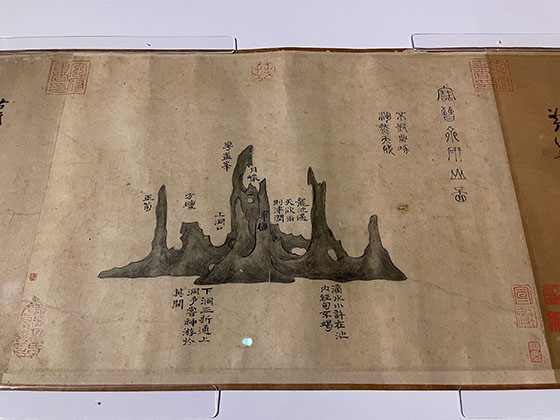 寶晉齋研山圖
不假雕琢
渾然天成
龍池遇
天欲雨
則津潤
滴水小許在池
內經旬不竭
翠巒
月巖
華蓋峯
上洞口
方壇
玉筍
下洞三折通上
洞予嘗神游於
其間